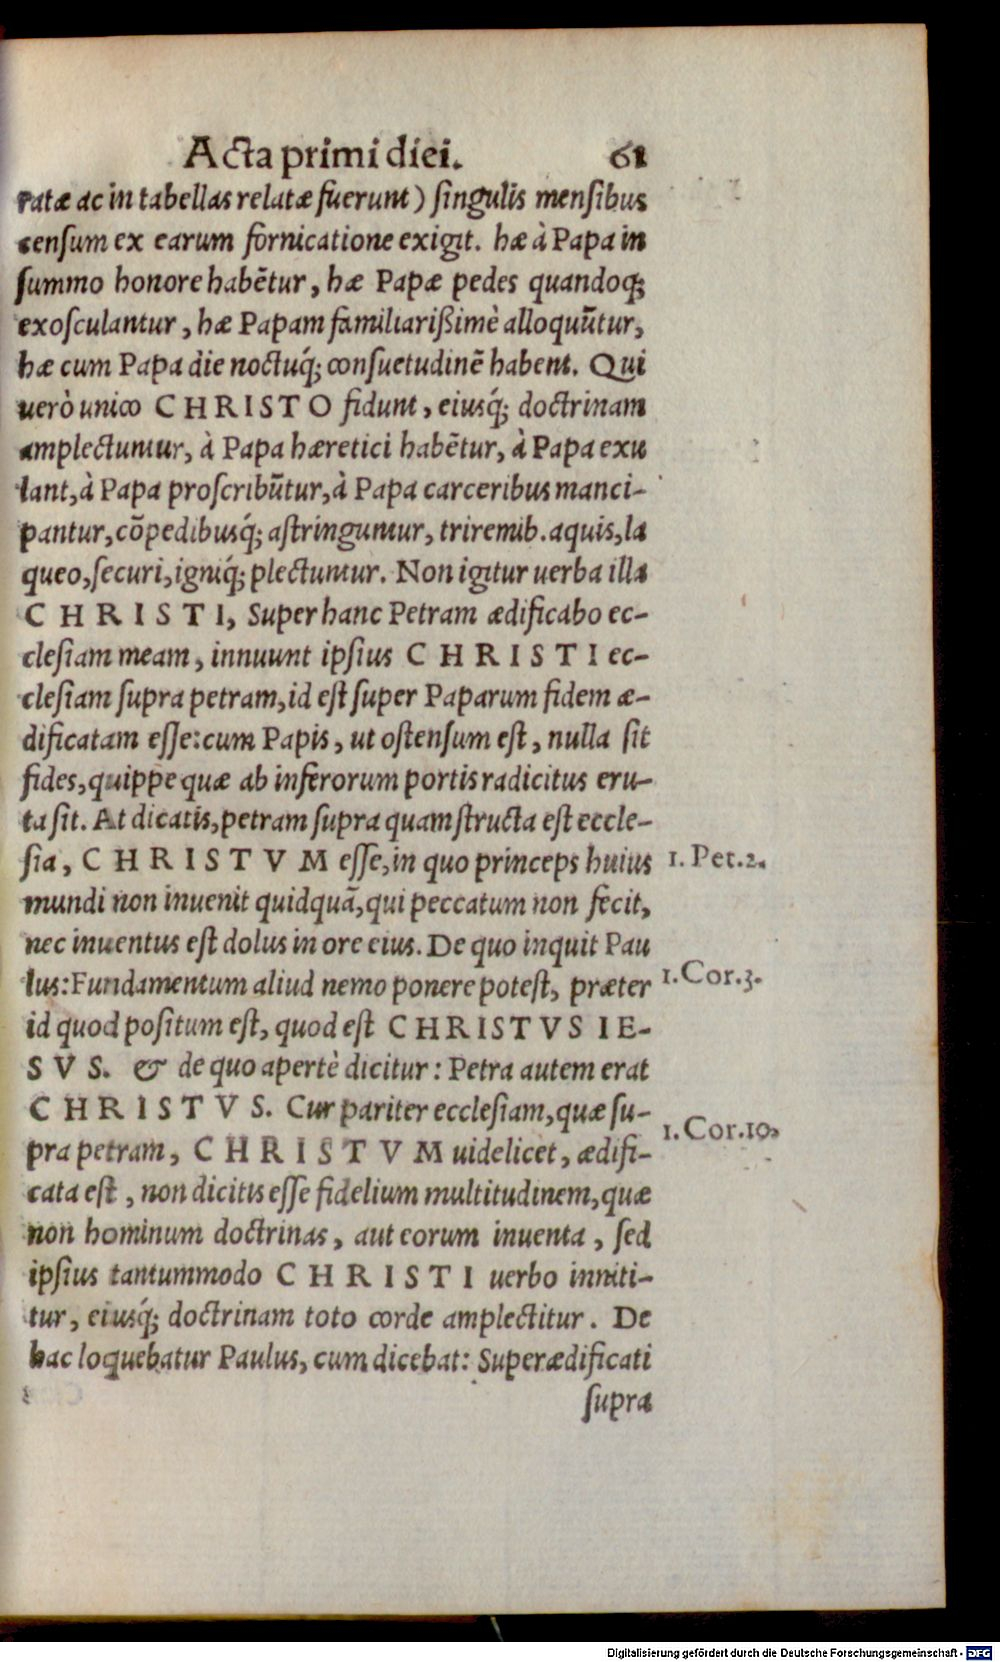 Acta primi diei. 61
ratæ ac in tabellas relatæ fuerunt) ſingulis menſibus
cenſum ex earum fornicatione exigit. hæ à Papa in
ſummo honore habẽtur, hæ Papæ pedes quandoq;
exoſculantur, hæ Papam familiarißimè alloquũtur,
hæ cum Papa die noctuq́; conſuetudinẽ habent. Qui
uerò unico CHRISTO fidunt, eiusq́; doctrinam
amplectuntur, à Papa hæretici habẽtur, à Papa exu
lant, à Papa proſcribũtur, à Papa carceribus manci-
pantur, cõpedibusq́; aſtringuntur, triremib. aquis, la
queo, ſecuri, igniq́; plectuntur. Non igitur uerba illa
CHRISTI, Super hanc Petram ædificabo ec-
cleſiam meam, innuunt ipſius CHRISTI ec-
cleſiam ſupra petram, id eſt ſuper Paparum fidem æ-
dificatam eſſe: cum Papis, ut oſtenſum eſt, nulla ſit
fides, quippe quæ ab inferorum portis radicitus eru-
ta ſit. At dicatis, petram ſupra quam ſtructa eſt eccle-
ſia, CHRISTVM eſſe, in quo princeps huius 1. Pet. 2.
mundi non inuenit quidquã, qui peccatum non fecit,
nec inuentus eſt dolus in ore eius. De quo inquit Pau
lus: Fundamentum aliud nemo ponere poteſt, præter 1. Cor. 3.
id quod poſitum eſt, quod eſt CHRISTVS IE-
SVS. & de quo apertè dicitur: Petra autem erat
CHRISTVS. Cur pariter eccleſiam, quæ ſu-
pra petram, CHRISTVM uidelicet, ædifi- 1. Cor. 10.
cata eſt, non dicitis eſſe fidelium multitudinem, quæ
non hominum doctrinas, aut eorum inuenta, ſed
ipſius tantummodo CHRISTI uerbo inniti-
tur, eiusq́; doctrinam toto corde amplectitur. De
hac loquebatur Paulus, cum dicebat: Superædificati
ſupra
Digitalisierung gefördert durch die Deutsche Forschungsgemeinschaft - DFG